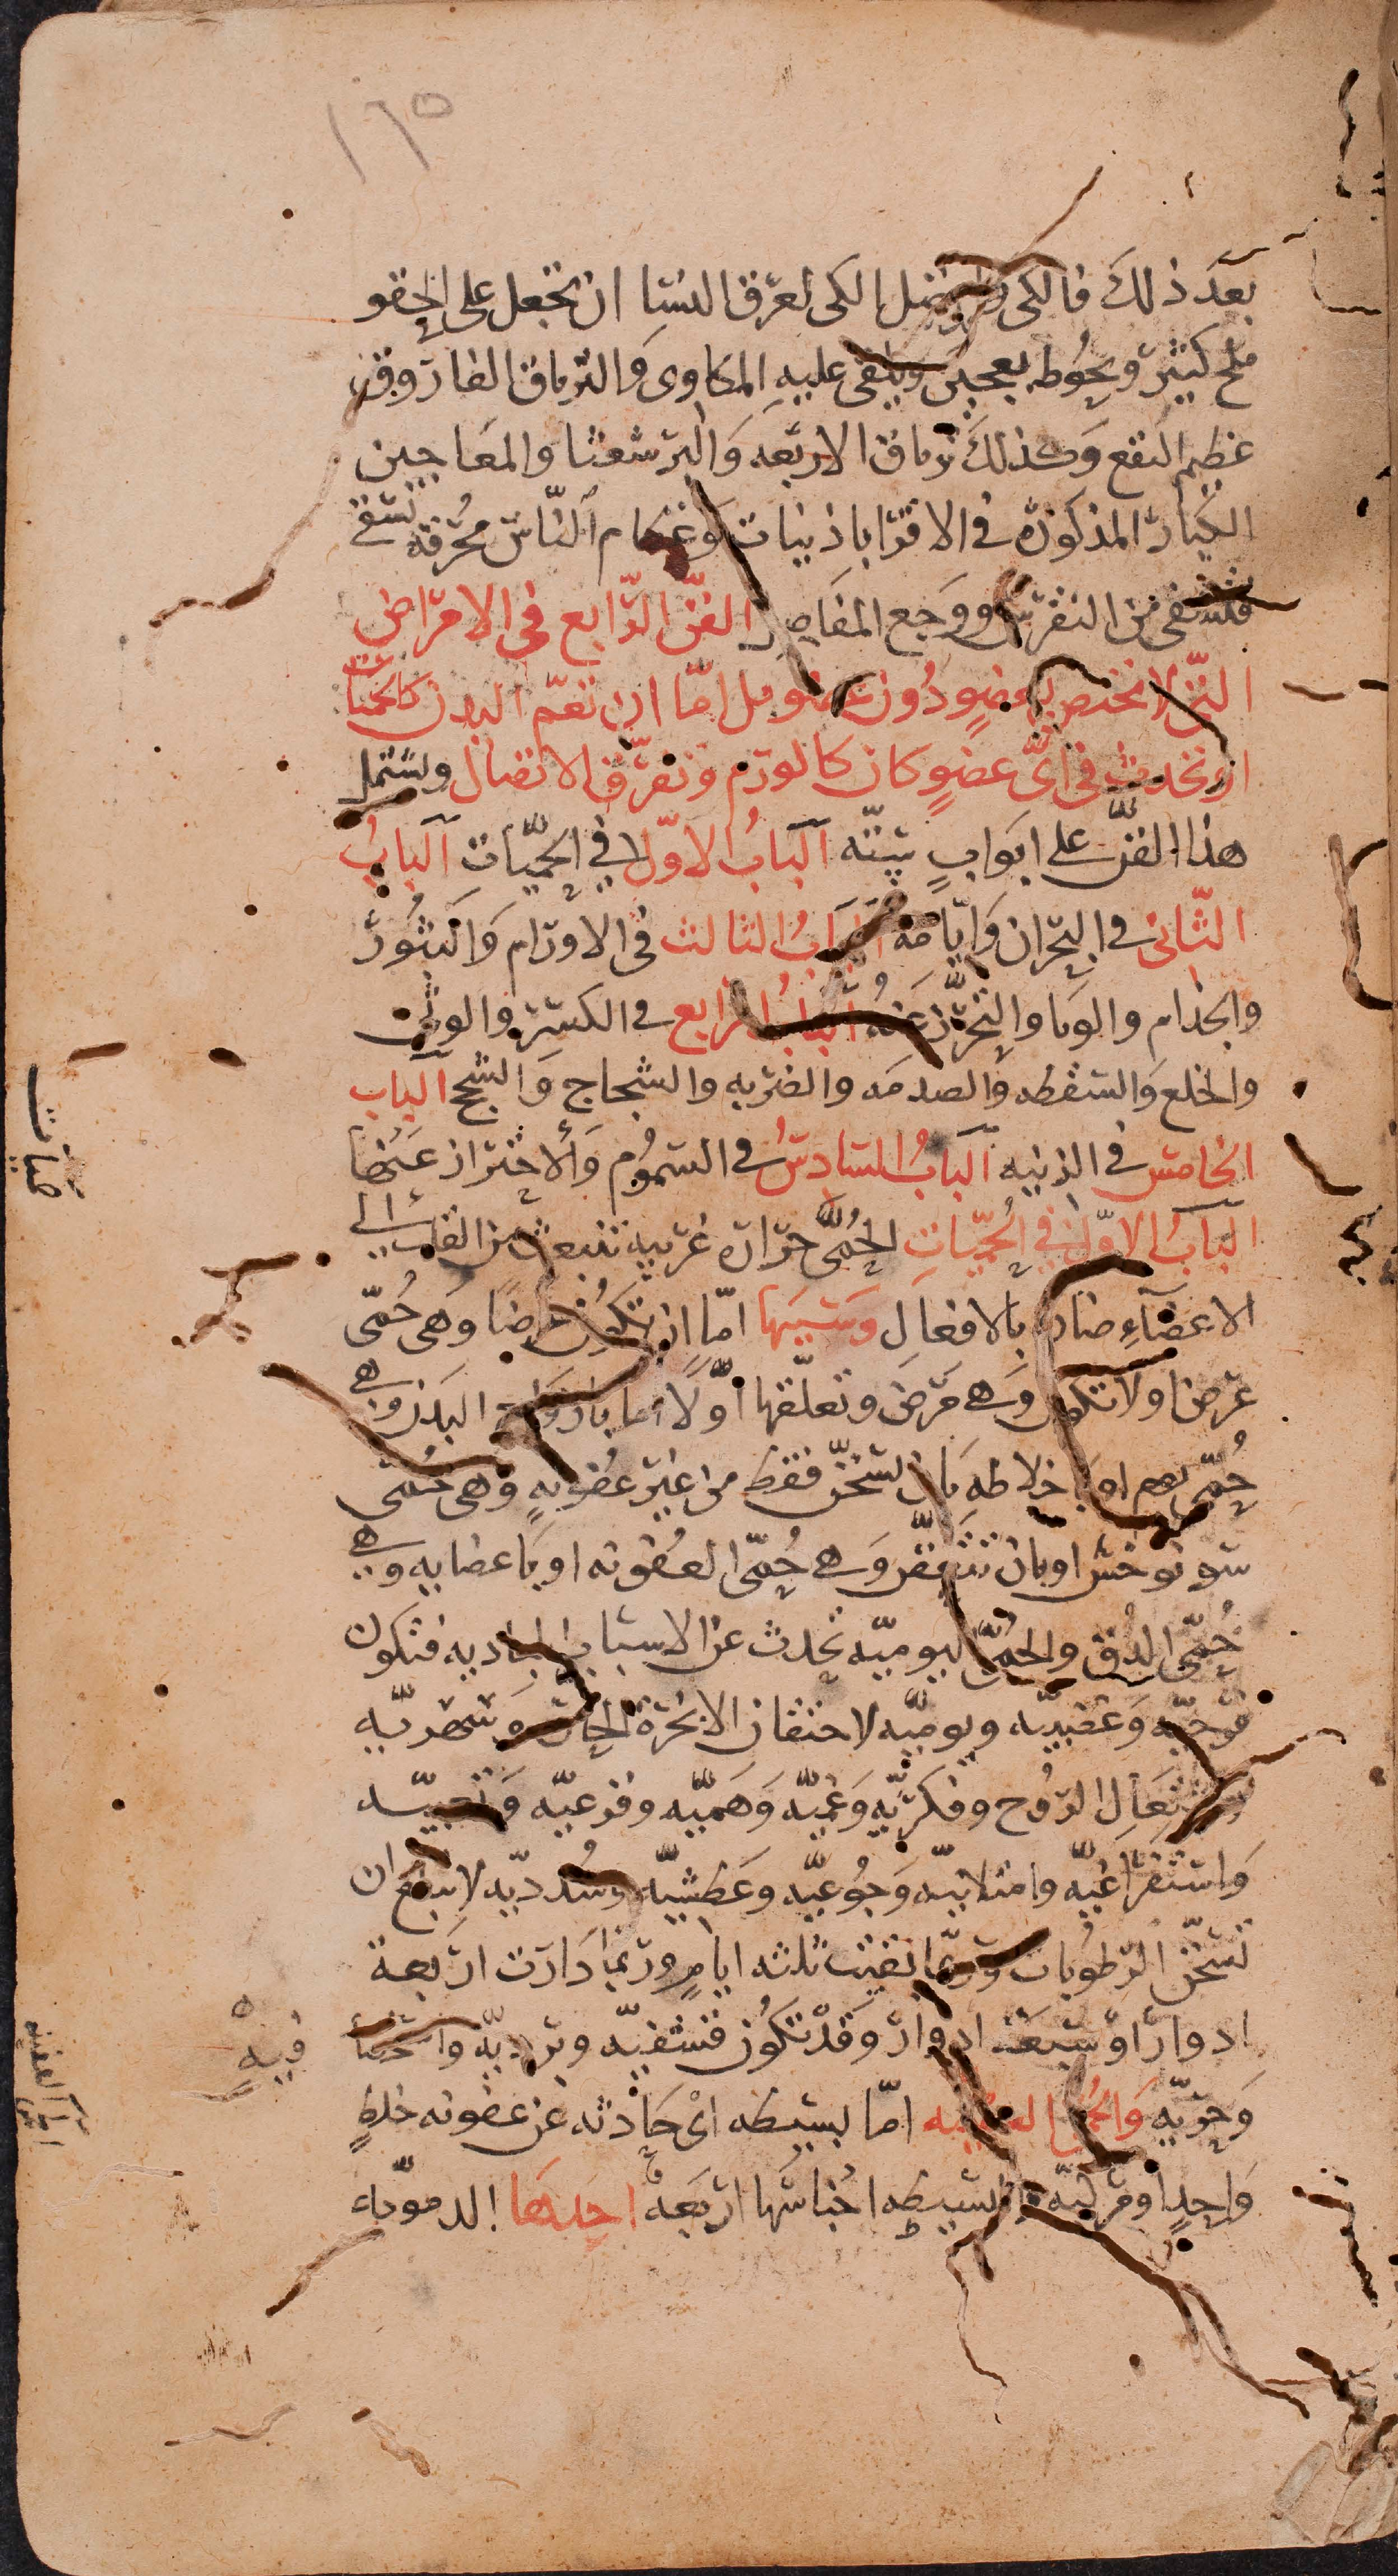 ١٦٥
بعد ذلك فالكي وافضل الكي لعرق النسا ان تجعل على الحقو
ملح كثير ويحوطه بعجين ويلقى عليه المكاوى والترياق الفاروق
عظيم النفع وكذلك ترياق الاربعه والبرشعثا والمعاجين
الكبار المذكورة في الاقراباذينات وعظام الناس محرقه تسقى
فتشفى من النقرس ووجع المفاصل الفن الرابع في الامراض
التي لا تختص بعضو دون عضو بل اما ان تعم البدن كالحميات
او تحدث في اى عضو كان كالورم وتفرق الاتصال ويشتمل
هذا الفن على ابواب سته الباب الاول في الحميات الباب
الثاني في البحران وايامه الباب الثالث في الاورام والبثور
والجذام والوبا والتحرز عنه الباب الرابع في الكسر والوثى
والخلع والسقطه والصدمه والضربه والشجاج والسحج الباب
الخامس في الزينه الباب السادس في السموم والاحتراز عنها
الباب الاول في الحميات الحمى حرارة غريبه تنبعث من القلب الى
الاعضاء ضارة بالافعال وسببها اما ان تكون مرضا وهى حمى
عرض او لا تكون وهى مرض وتعلقها اولا اما بارواح البدن وهى
حمى يوم او باخلاطه بان تسخن فقط من غير عفونه وهى حمى
سونوخس او بان تتعفن وهى حمى العفونه او باعضايه وهى
حمى الدق والحمى اليوميه تحدث عن الاسباب الباديه فتكون
فرحيه وغضبيه ونوميه لاحتقان الابخرة الحاره وسهريه
لاشتعال الروح وفكريه وغميه وهميه وفزعيه وتعبيه
واستفراغيه وامتلاييه وجوعيه وعطشيه وسدديه لا تبلغ ان
تسخن الرطوبات وربما بقيت ثلثه ايام وربما دارت اربعة
ادوار او سبعة ادوار وقد تكون قشفيه وبرديه واستحصافيه
وحريه والحمى العفنيه اما بسيطه اى حادثه عن عفونه خلط
واحد او مركبه والبسيطه اجناسها اربعة احدها الدمويه
حميات
الحمى العفنيه